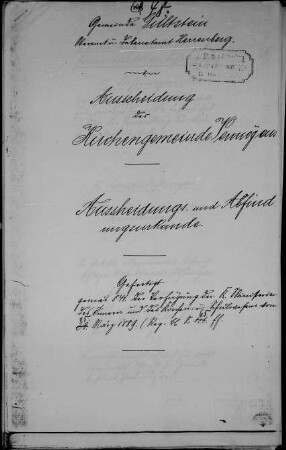 Gemeinde Gültstein
Oberamt u. Dekanatamt Herrenberg.
Ausscheidung
der
Kirchengemeinde Vermögen
Ausscheidungs und Abfind
ungsurkunde.
Gefertigt
gemäß § 41. der Verfügung der K. Ministerien
des Innern und des Kirchen u. Schulwesens vom
März 1889. (Reg. Bl. S. ff